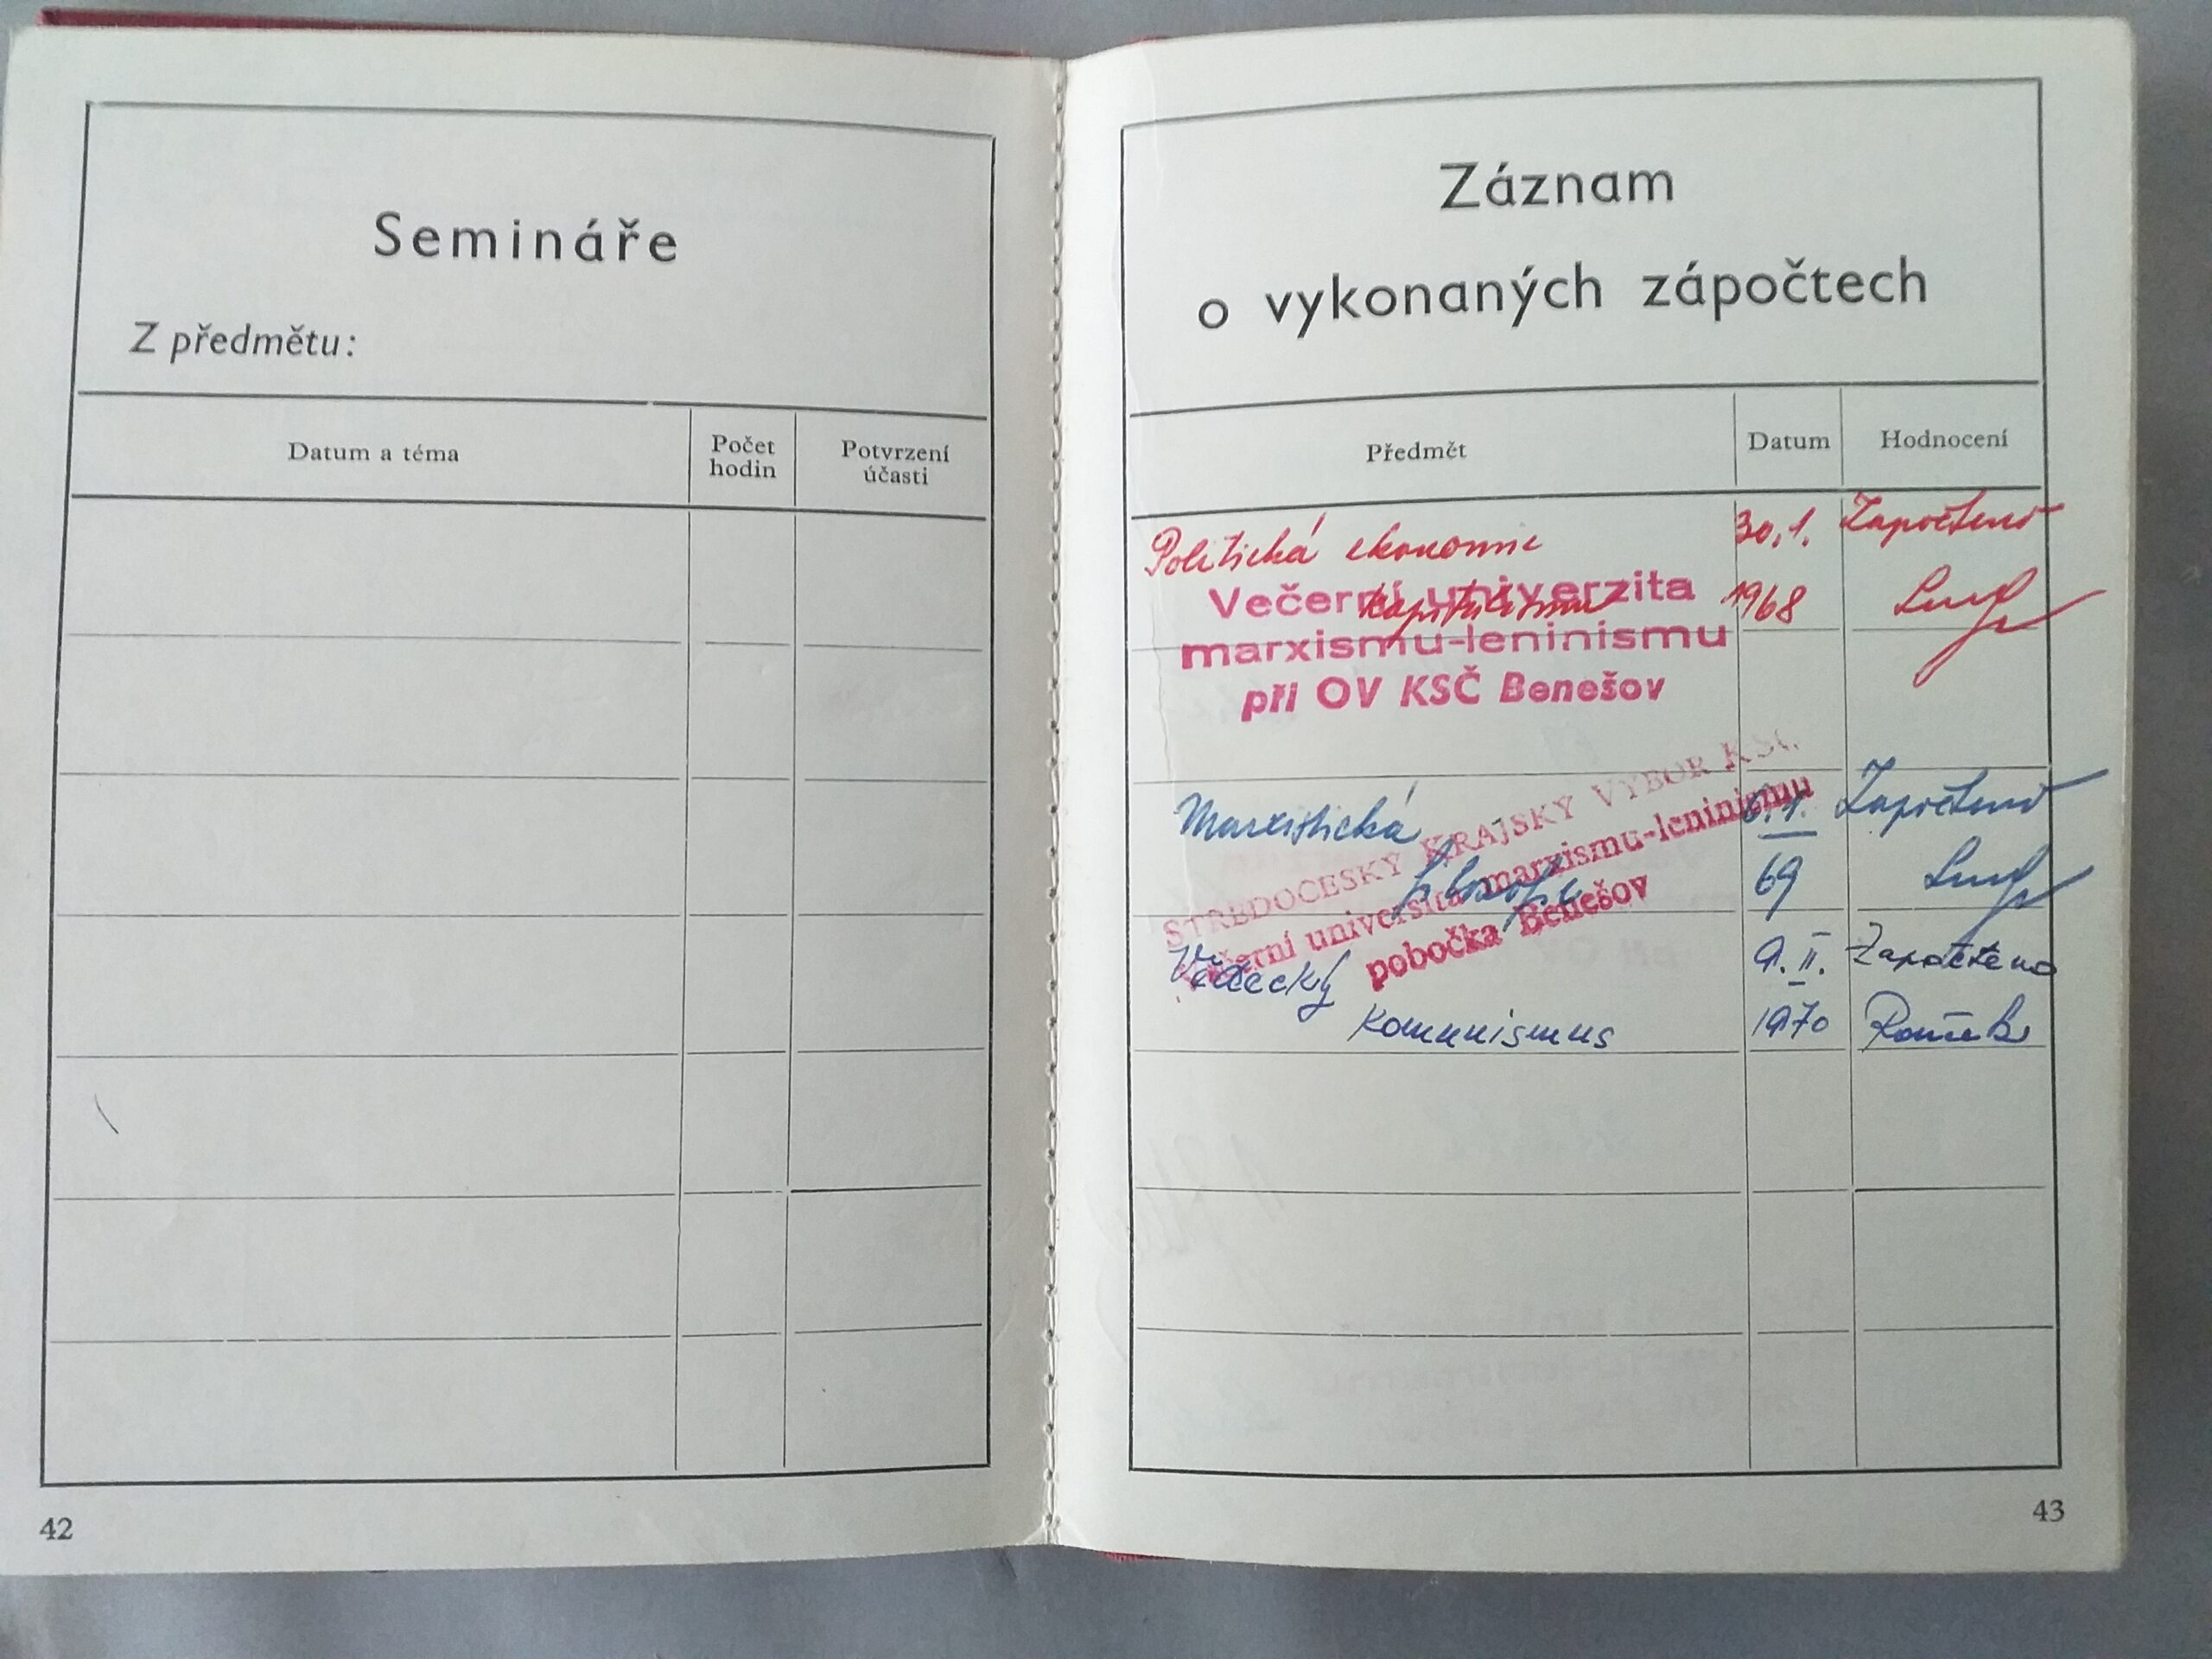 Semináře
Z předmětu:
Datum a téma
Počet
hodin
Potvrzení
účasti
42
Záznam
o vykonaných zápočtech
Předmět
Datum
Hodnocení
Politická ekonomie
30.1.
Započteno
kapitalismu
1968
Večerní univerzita
marxismu-leninismu
při OV KSČ Benešov
Marxistická
6.1.
Započteno
filosofie
69
STŘEDOČESKÝ KRAJSKÝ VÝBOR KSČ
Večerní universita marxismu-leninismu
pobočka Benešov
Vědecký
9.II.
Započteno
Komunismus
1970
43